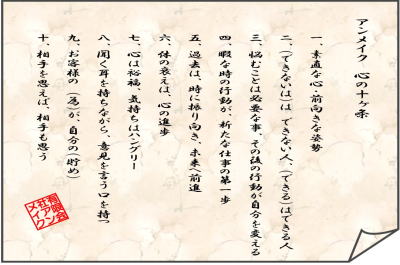 アンメイク 心の十ヶ条
一、素直な心・前向きな姿勢
二、（できない）は できない人、（できる）はできる人
三、悩むことは必要な事、その後の行動が自分を変える
四、暇な時の行動が、新たな仕事の第一歩
五、過去は、時に振り向き、未来へ前進
六、体の衰えは、心の進歩
七、心は裕福、気持ちはハングリー
八、聞く耳を持ちながら、意見を言う口を持つ
九、お客様の（為）が、自分の（貯め）
十、相手を思えば、相手も思う
有限会
社アン
メイク